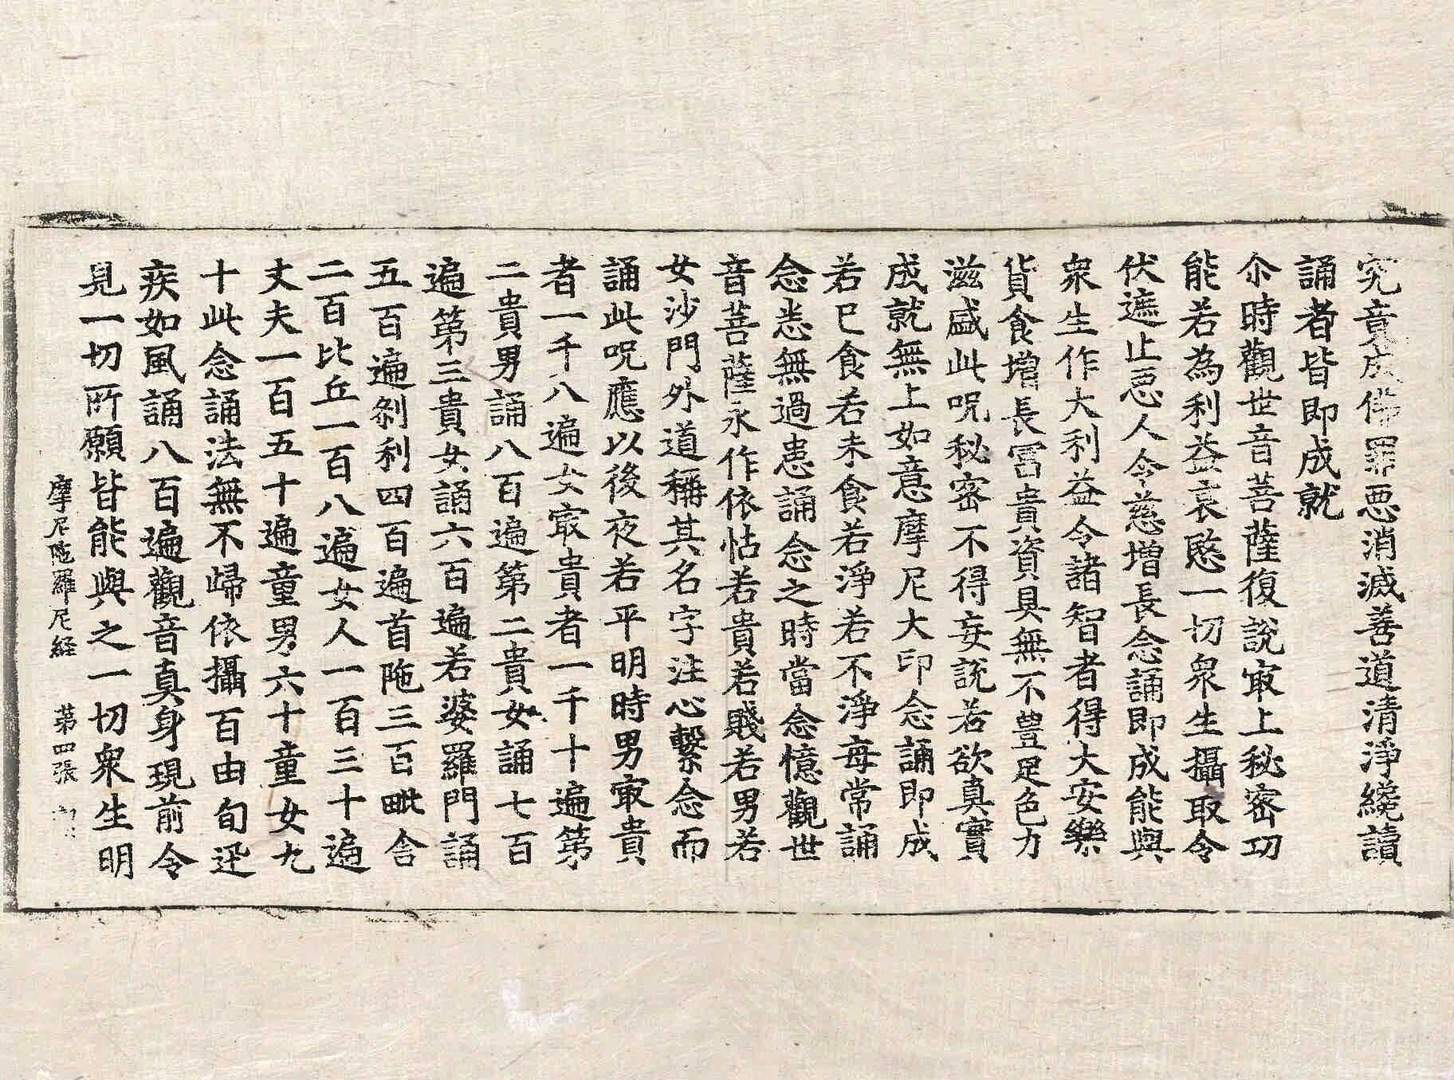 究竟成佛罪惡消滅善道清淨纔讀
誦者皆即成就
尒時觀世音菩薩復說㝡上秘密功
能若為利益哀愍一切衆生攝取令
伏遮止惡人令慈增長念誦即成能與
衆生作大利益令諸智者得大安樂
貨食增長富貴資具無不豊足色力
滋盛此呪秘密不得妄說若欲真實
成就無上如意摩尼大印念誦即成
若已食若未食若淨若不淨每常誦
念悉無過患誦念之時當念憶觀世
音菩薩永作依怙若貴若賤若男若
女沙門外道稱其名字注心繫念而
誦此呪應以後夜若平明時男㝡貴
者一千八遍女㝡貴者一千十遍第
二貴男誦八百遍第二貴女誦七百
遍第三貴女誦六百遍若婆羅門誦
五百遍剎利四百遍首陁三百毗舍
二百比丘一百八遍女人一百三十遍
丈夫一百五十遍童男六十童女九
十此念誦法無不歸依攝百由旬迅
疾如風誦八百遍觀音真身現前令
見一切所願皆能與之一切衆生明
摩尼陁羅尼経 第四張